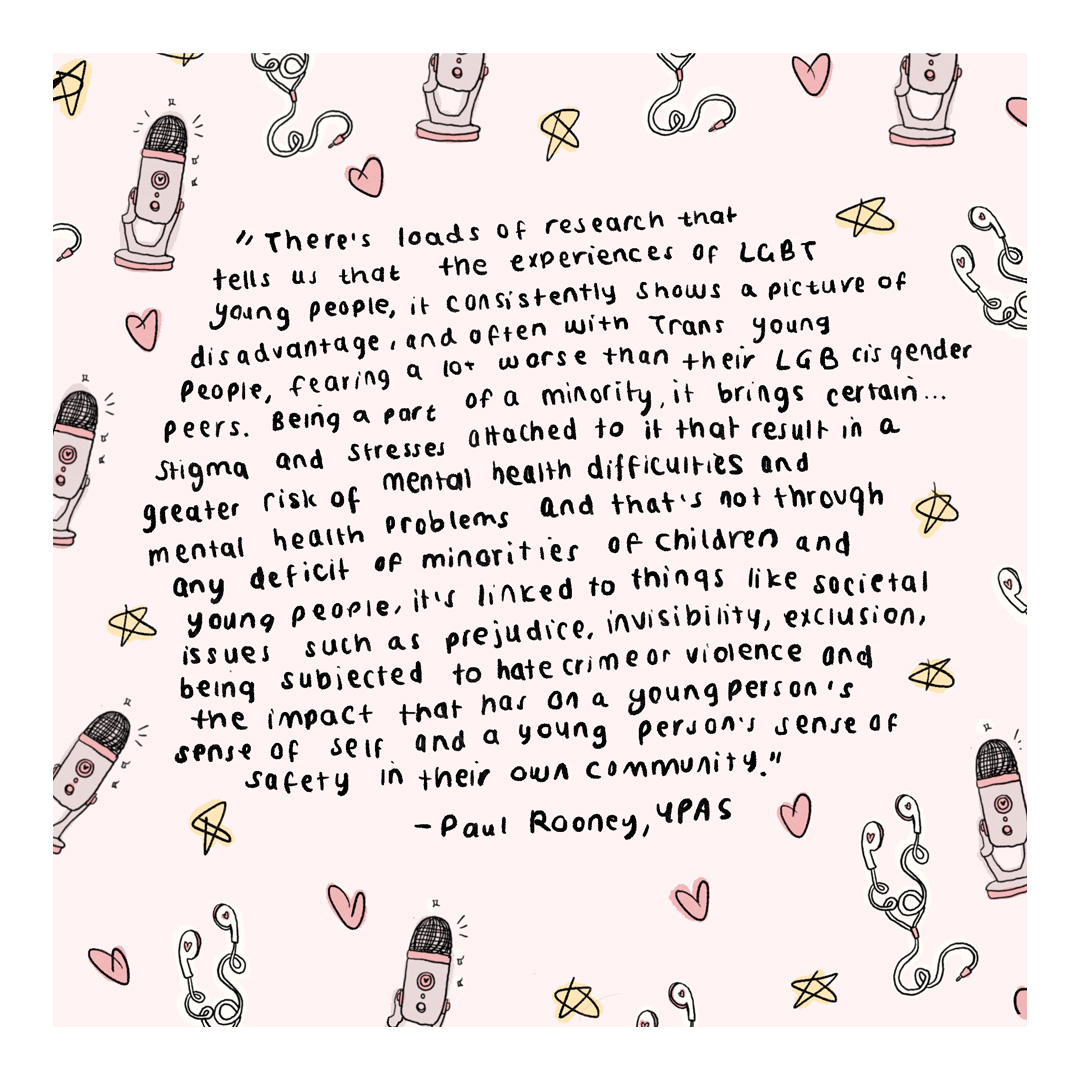 "There's loads of research that
tells us that the experiences of LGBT
young people, it consistently shows a picture of
disadvantage, and often with Trans young
people, fearing a lot worse than their LGB cisgender
peers. Being a part of a minority, it brings certain...
stigma and stresses attached to it that result in a
greater risk of mental health difficulties and
mental health problems and that's not through
any deficit of minorities of children and
young people, it's linked to things like societal
issues such as prejudice, invisibility, exclusion,
being subjected to hate crime or violence and
the impact that has on a young person's
sense of self and a young person's sense of
safety in their own community."
- Paul Rooney, YPAS